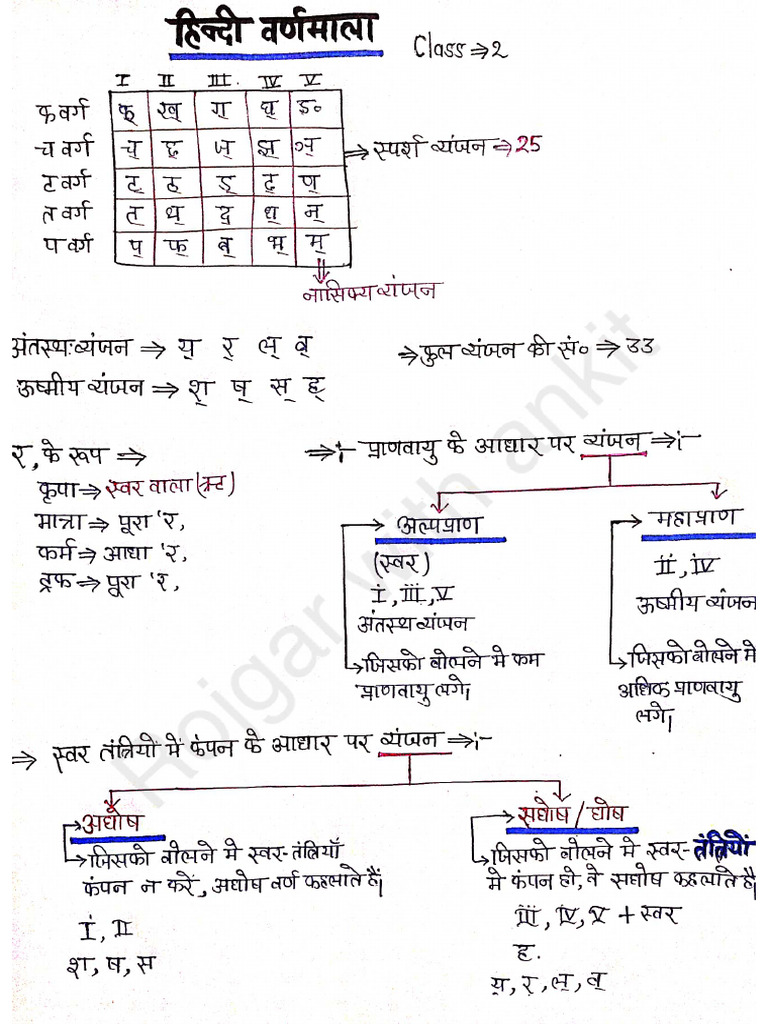 हिन्दी वर्णमाला
Class ⇒ 2
I II III. IV V
क वर्ग क् ख् ग् घ् ङ॰
च वर्ग च् छ् ज् झ् ञ् ⇒ स्पर्श व्यंजन ⇒ 25
ट वर्ग ट् ठ् ड् ढ् ण्
त वर्ग त् थ् द् ध् न्
प वर्ग प् फ् ब् भ् म्
नासिक्य व्यंजन
अंतस्थः व्यंजन ⇒ य् र् ल् व् ⇒ कुल व्यंजन की सं॰ ⇒ 33
ऊष्मीय व्यंजन ⇒ श् ष् स् ह्
र, के रूप ⇒
कृपा ⇒ स्वर वाला (ऋ)
मात्रा ⇒ पूरा 'र,
कर्म ⇒ आधा 'र,
ट्रक ⇒ पूरा 'र,
⇒:- प्राणवायु के आधार पर व्यंजन ⇒:-
अल्पप्राण
(स्वर)
I, III, V
अंतस्थ व्यंजन
जिसको बोलने मे कम
प्राणवायु लगे।
महाप्राण
II, IV
ऊष्मीय व्यंजन
जिसको बोलने मे
अधिक प्राणवायु
लगे।
⇒ स्वर तंत्रियों में कंपन के आधार पर व्यंजन ⇒:-
अघोष
जिसको बोलने मे स्वर-तंत्रियाँ
कंपन न करें, अघोष वर्ण कहलाते हैं।
I, II
श, ष, स
सघोष / घोष
जिसको बोलने मे स्वर-तंत्रियों
मे कंपन हो, वे सघोष कहलाते है।
III, IV, V + स्वर
ह.
य्, र्, ल्, व्
Rojgar with ankit